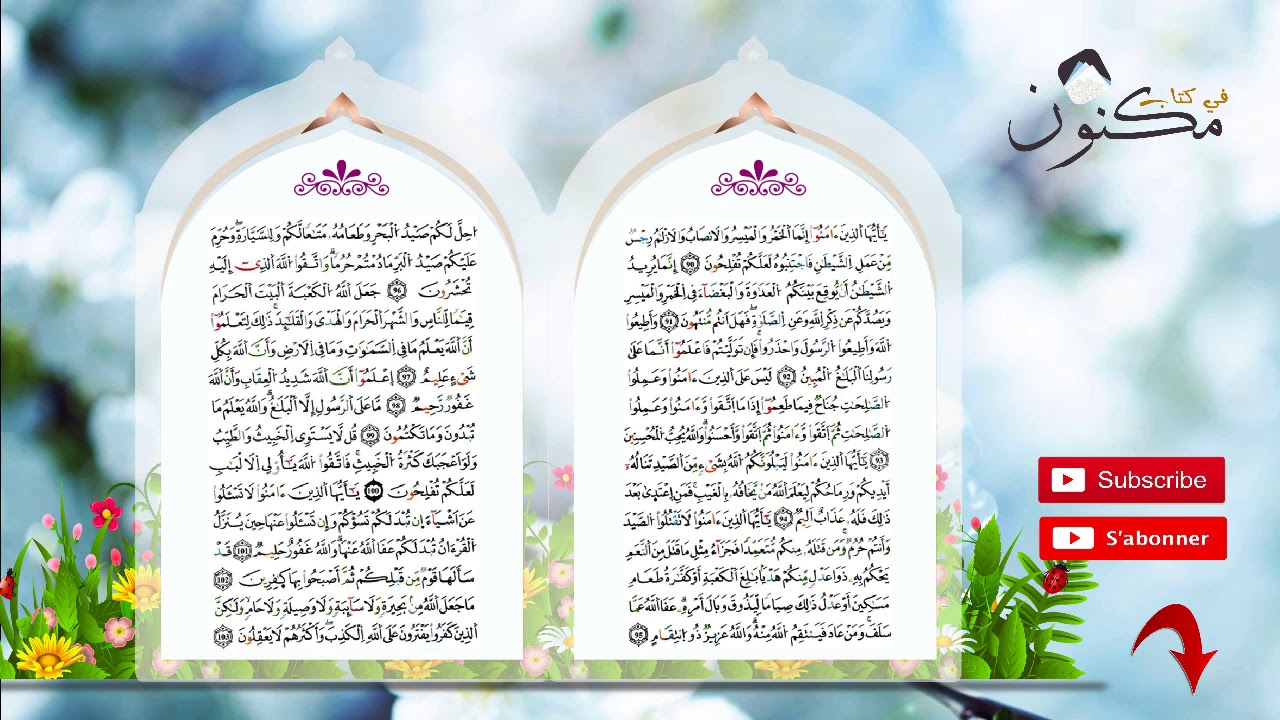 في كتاب
مكنون
يَٰٓأَيُّهَا اَلذِينَ ءَامَنُوٓاْ إِنَّمَا اَلْخَمْرُ وَالْمَيْسِرُ وَالَانصَابُ وَالَازْلَٰمُ رِجْسٞ
مِّنْ عَمَلِ اِلشَّيْطَٰنِ فَاجْتَنِبُوهُ لَعَلَّكُمْ تُفْلِحُونَ 90 إِنَّمَا يُرِيدُ
اُلشَّيْطَٰنُ أَنْ يُّوقِعَ بَيْنَكُمُ الْعَدَٰوَةَ وَالْبَغْضَآءَ فِي اِلْخَمْرِ وَالْمَيْسِرِ
وَيَصُدَّكُمْ عَن ذِكْرِ اِللَّهِ وَعَنِ اِلصَّلَوٰةِ فَهَلَ اَنتُم مُّنتَهُونَ 91 وَأَطِيعُواْ
اُللَّهَ وَأَطِيعُواْ اُلرَّسُولَ وَاحْذَرُواْ فَإِن تَوَلَّيْتُمْ فَاعْلَمُوٓاْ أَنَّمَا عَلَىٰ
رَسُولِنَا اَلْبَلَٰغُ الْمُبِينُ 92 لَيْسَ عَلَى اَلذِينَ ءَامَنُواْ وَعَمِلُواْ
اُلصَّٰلِحَٰتِ جُنَاحٞ فِيمَا طَعِمُوٓاْ إِذَا مَا اَتَّقَواْ وَّءَامَنُواْ وَعَمِلُواْ
اُلصَّٰلِحَٰتِ ثُمَّ اَتَّقَواْ وَّءَامَنُواْ ثُمَّ اَتَّقَواْ وَّأَحْسَنُواْ وَاللَّهُ يُحِبُّ الْمُحْسِنِينَ
93 يَٰٓأَيُّهَا اَلذِينَ ءَامَنُواْ لَيَبْلُوَنَّكُمُ اللَّهُ بِشَيْءٖ مِّنَ اَلصَّيْدِ تَنَالُهُۥٓ
أَيْدِيكُمْ وَرِمَاحُكُمْ لِيَعْلَمَ اَللَّهُ مَنْ يَّخَافُهُۥ بِالْغَيْبِ فَمَنِ اِعْتَدَىٰ بَعْدَ
ذَٰلِكَ فَلَهُۥ عَذَابٌ اَلِيمٞ 94 يَٰٓأَيُّهَا اَلذِينَ ءَامَنُواْ لَا تَقْتُلُواْ اُلصَّيْدَ
وَأَنتُمْ حُرُمٞ وَمَن قَتَلَهُۥ مِنكُم مُّتَعَمِّداٗ فَجَزَآءُ مِثْلِ مَا قَتَلَ مِنَ اَلنَّعَمِ
يَحْكُمُ بِهِۦ ذَوَا عَدْلٖ مِّنكُمْ هَدْياَۢ بَٰلِغَ اَلْكَعْبَةِ أَوْ كَفَّٰرَةُ طَعَامِ
مَسَٰكِينَ أَوْ عَدْلُ ذَٰلِكَ صِيَاماٗ لِّيَذُوقَ وَبَالَ أَمْرِهِۦ عَفَا اَللَّهُ عَمَّا
سَلَفَ وَمَنْ عَادَ فَيَنتَقِمُ اللَّهُ مِنْهُ وَاللَّهُ عَزِيزٞ ذُو اُنتِقَامٍ 95
اُحِلَّ لَكُمْ صَيْدُ اُلْبَحْرِ وَطَعَامُهُۥ مَتَٰعاٗ لَّكُمْ وَلِلسَّيَّارَةِ وَحُرِّمَ
عَلَيْكُمْ صَيْدُ اُلْبَرِّ مَا دُمْتُمْ حُرُماٗ وَاتَّقُواْ اُللَّهَ اَلذِےٓ إِلَيْهِ
تُحْشَرُونَ 96 جَعَلَ اَللَّهُ اُلْكَعْبَةَ اَلْبَيْتَ اَلْحَرَامَ
قِيَٰماٗ لِّلنَّاسِ وَالشَّهْرَ اَلْحَرَامَ وَالْهَدْيَ وَالْقَلَٰٓئِدَ ذَٰلِكَ لِتَعْلَمُوٓاْ
أَنَّ اَللَّهَ يَعْلَمُ مَا فِي اِلسَّمَٰوَٰتِ وَمَا فِي اِلَارْضِ وَأَنَّ اَللَّهَ بِكُلِّ
شَيْءٍ عَلِيمٌ 97 اِعْلَمُوٓاْ أَنَّ اَللَّهَ شَدِيدُ اُلْعِقَابِ وَأَنَّ اَللَّهَ
غَفُورٞ رَّحِيمٞ 98 مَّا عَلَى اَلرَّسُولِ إِلَّا اَلْبَلَٰغُ وَاللَّهُ يَعْلَمُ مَا
تُبْدُونَ وَمَا تَكْتُمُونَ 99 قُل لَّا يَسْتَوِي اِلْخَبِيثُ وَالطَّيِّبُ
وَلَوَ اَعْجَبَكَ كَثْرَةُ اُلْخَبِيثِ فَاتَّقُواْ اُللَّهَ يَٰٓأُوْلِي اِلَالْبَٰبِ
لَعَلَّكُمْ تُفْلِحُونَ 100 يَٰٓأَيُّهَا اَلذِينَ ءَامَنُواْ لَا تَسْـَٔلُواْ
عَنَ اَشْيَآءَ ان تُبْدَ لَكُمْ تَسُؤْكُمْ وَإِن تَسْـَٔلُواْ عَنْهَا حِينَ يُنَزَّلُ
اُلْقُرْءَانُ تُبْدَ لَكُمْ عَفَا اَللَّهُ عَنْهَا وَاللَّهُ غَفُورٌ حَلِيمٞ 101 قَدْ
سَأَلَهَا قَوْمٞ مِّن قَبْلِكُمْ ثُمَّ أَصْبَحُواْ بِهَا كَٰفِرِينَ 102
مَا جَعَلَ اَللَّهُ مِنۢ بَحِيرَةٖ وَلَا سَآئِبَةٖ وَلَا وَصِيلَةٖ وَلَا حَامٖ وَلَٰكِنَّ
اَلذِينَ كَفَرُواْ يَفْتَرُونَ عَلَى اَللَّهِ اِلْكَذِبَ وَأَكْثَرُهُمْ لَا يَعْقِلُونَ 103
Subscribe
S'abonner